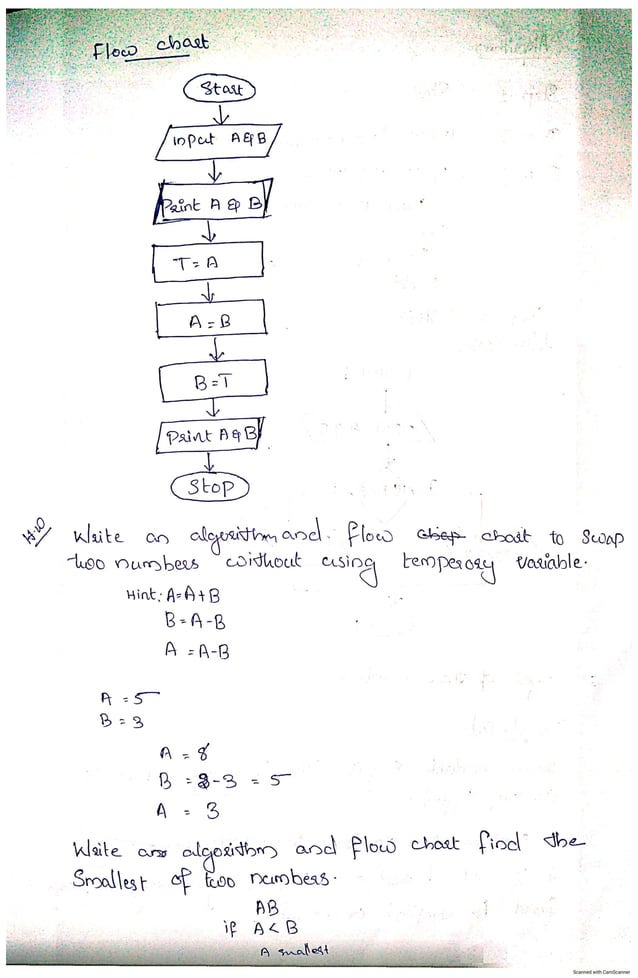 Flow chart
Start
Input A & B
Print A & B
T = A
A = B
B = T
Print A & B
Stop
H.W Write an algorithm and flow chart to swap
two numbers without using temperory variable.
Hint: A = A + B
B = A - B
A = A - B
A = 5
B = 3
A = 8
B = 8 - 3 = 5
A = 3
Write an algorithm and flow chart find the
Smallest of two numbers.
AB
if A < B
A smallest
Scanned with CamScanner